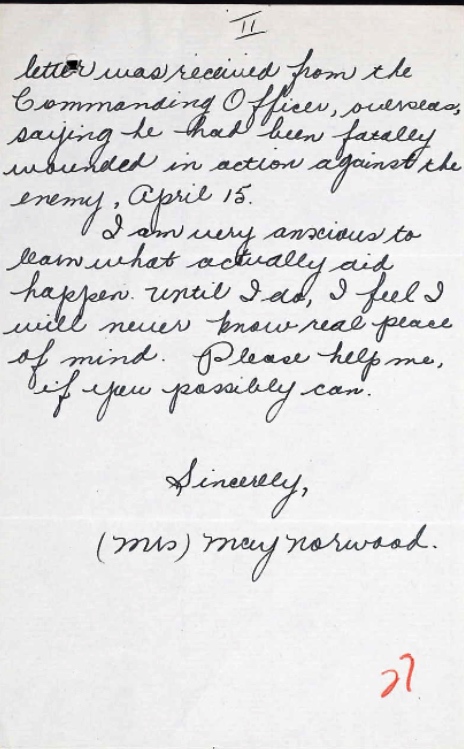 II
letter was received from the
Commanding Officer, overseas,
saying he had been fatally
wounded in action against the
enemy, April 15.
I am very anxious to
learn what actually did
happen. Until I do, I feel I
will never know real peace
of mind. Please help me,
if you possibly can.
Sincerely,
(Mrs) May Norwood.
27